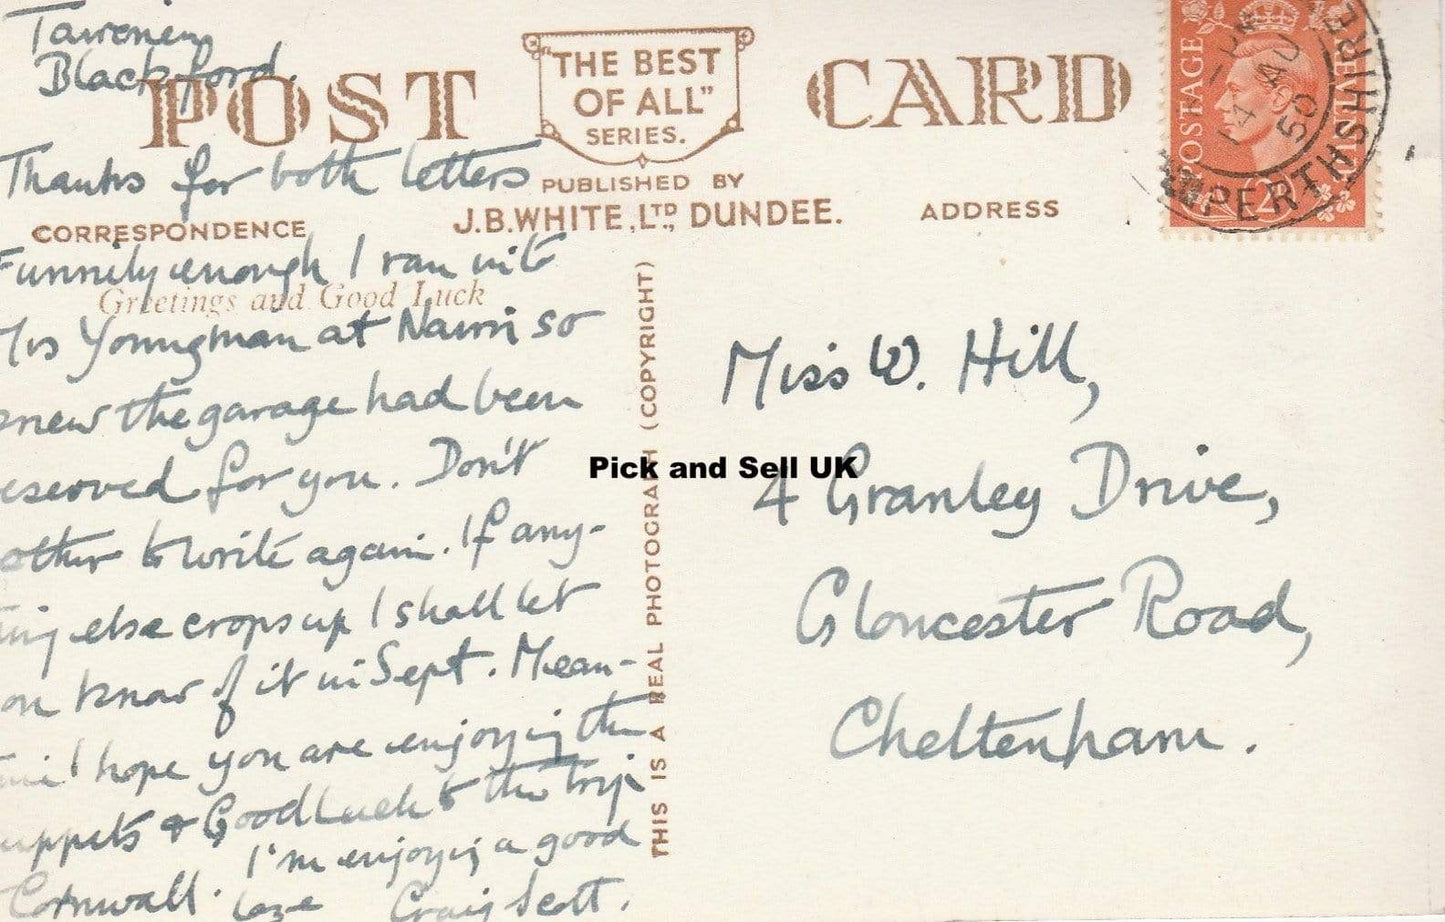 Blackford.
POST CARD
"THE BEST
OF ALL"
SERIES.
PUBLISHED BY
J.B. WHITE, LTD, DUNDEE.
CORRESPONDENCE
ADDRESS
Greetings and Good Luck
Thanks for both letters
Funnily enough I ran into
Youngman at Nairn so
knew the garage had been
eserved for you. Don't
other to write again. If any-
ing else crops up I shall let
ou know of it in Sept. Mean-
I hope you are enjoying the
uppets & Good Luck to the trip
Cornwall. I'm enjoying a good
laze Craig Scott.
THIS IS A REAL PHOTOGRAPH (COPYRIGHT)
Pick and Sell UK
Miss W. Hill,
4 Granley Drive,
Gloucester Road,
Cheltenham.
POSTAGE
REVENUE
2D
PERTHSHIRE
14 AU
50